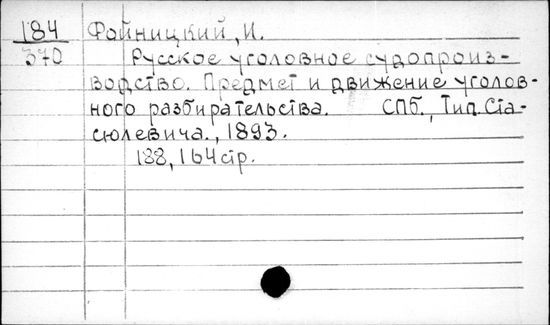 184 Фойницкий, И.
370 Русское уголовное судопроиз-
водство. Предмет и движение уголов-
ного разбирательства. СПб., Тип. Ста-
сюлевича., 1893.
188, 164 стр.